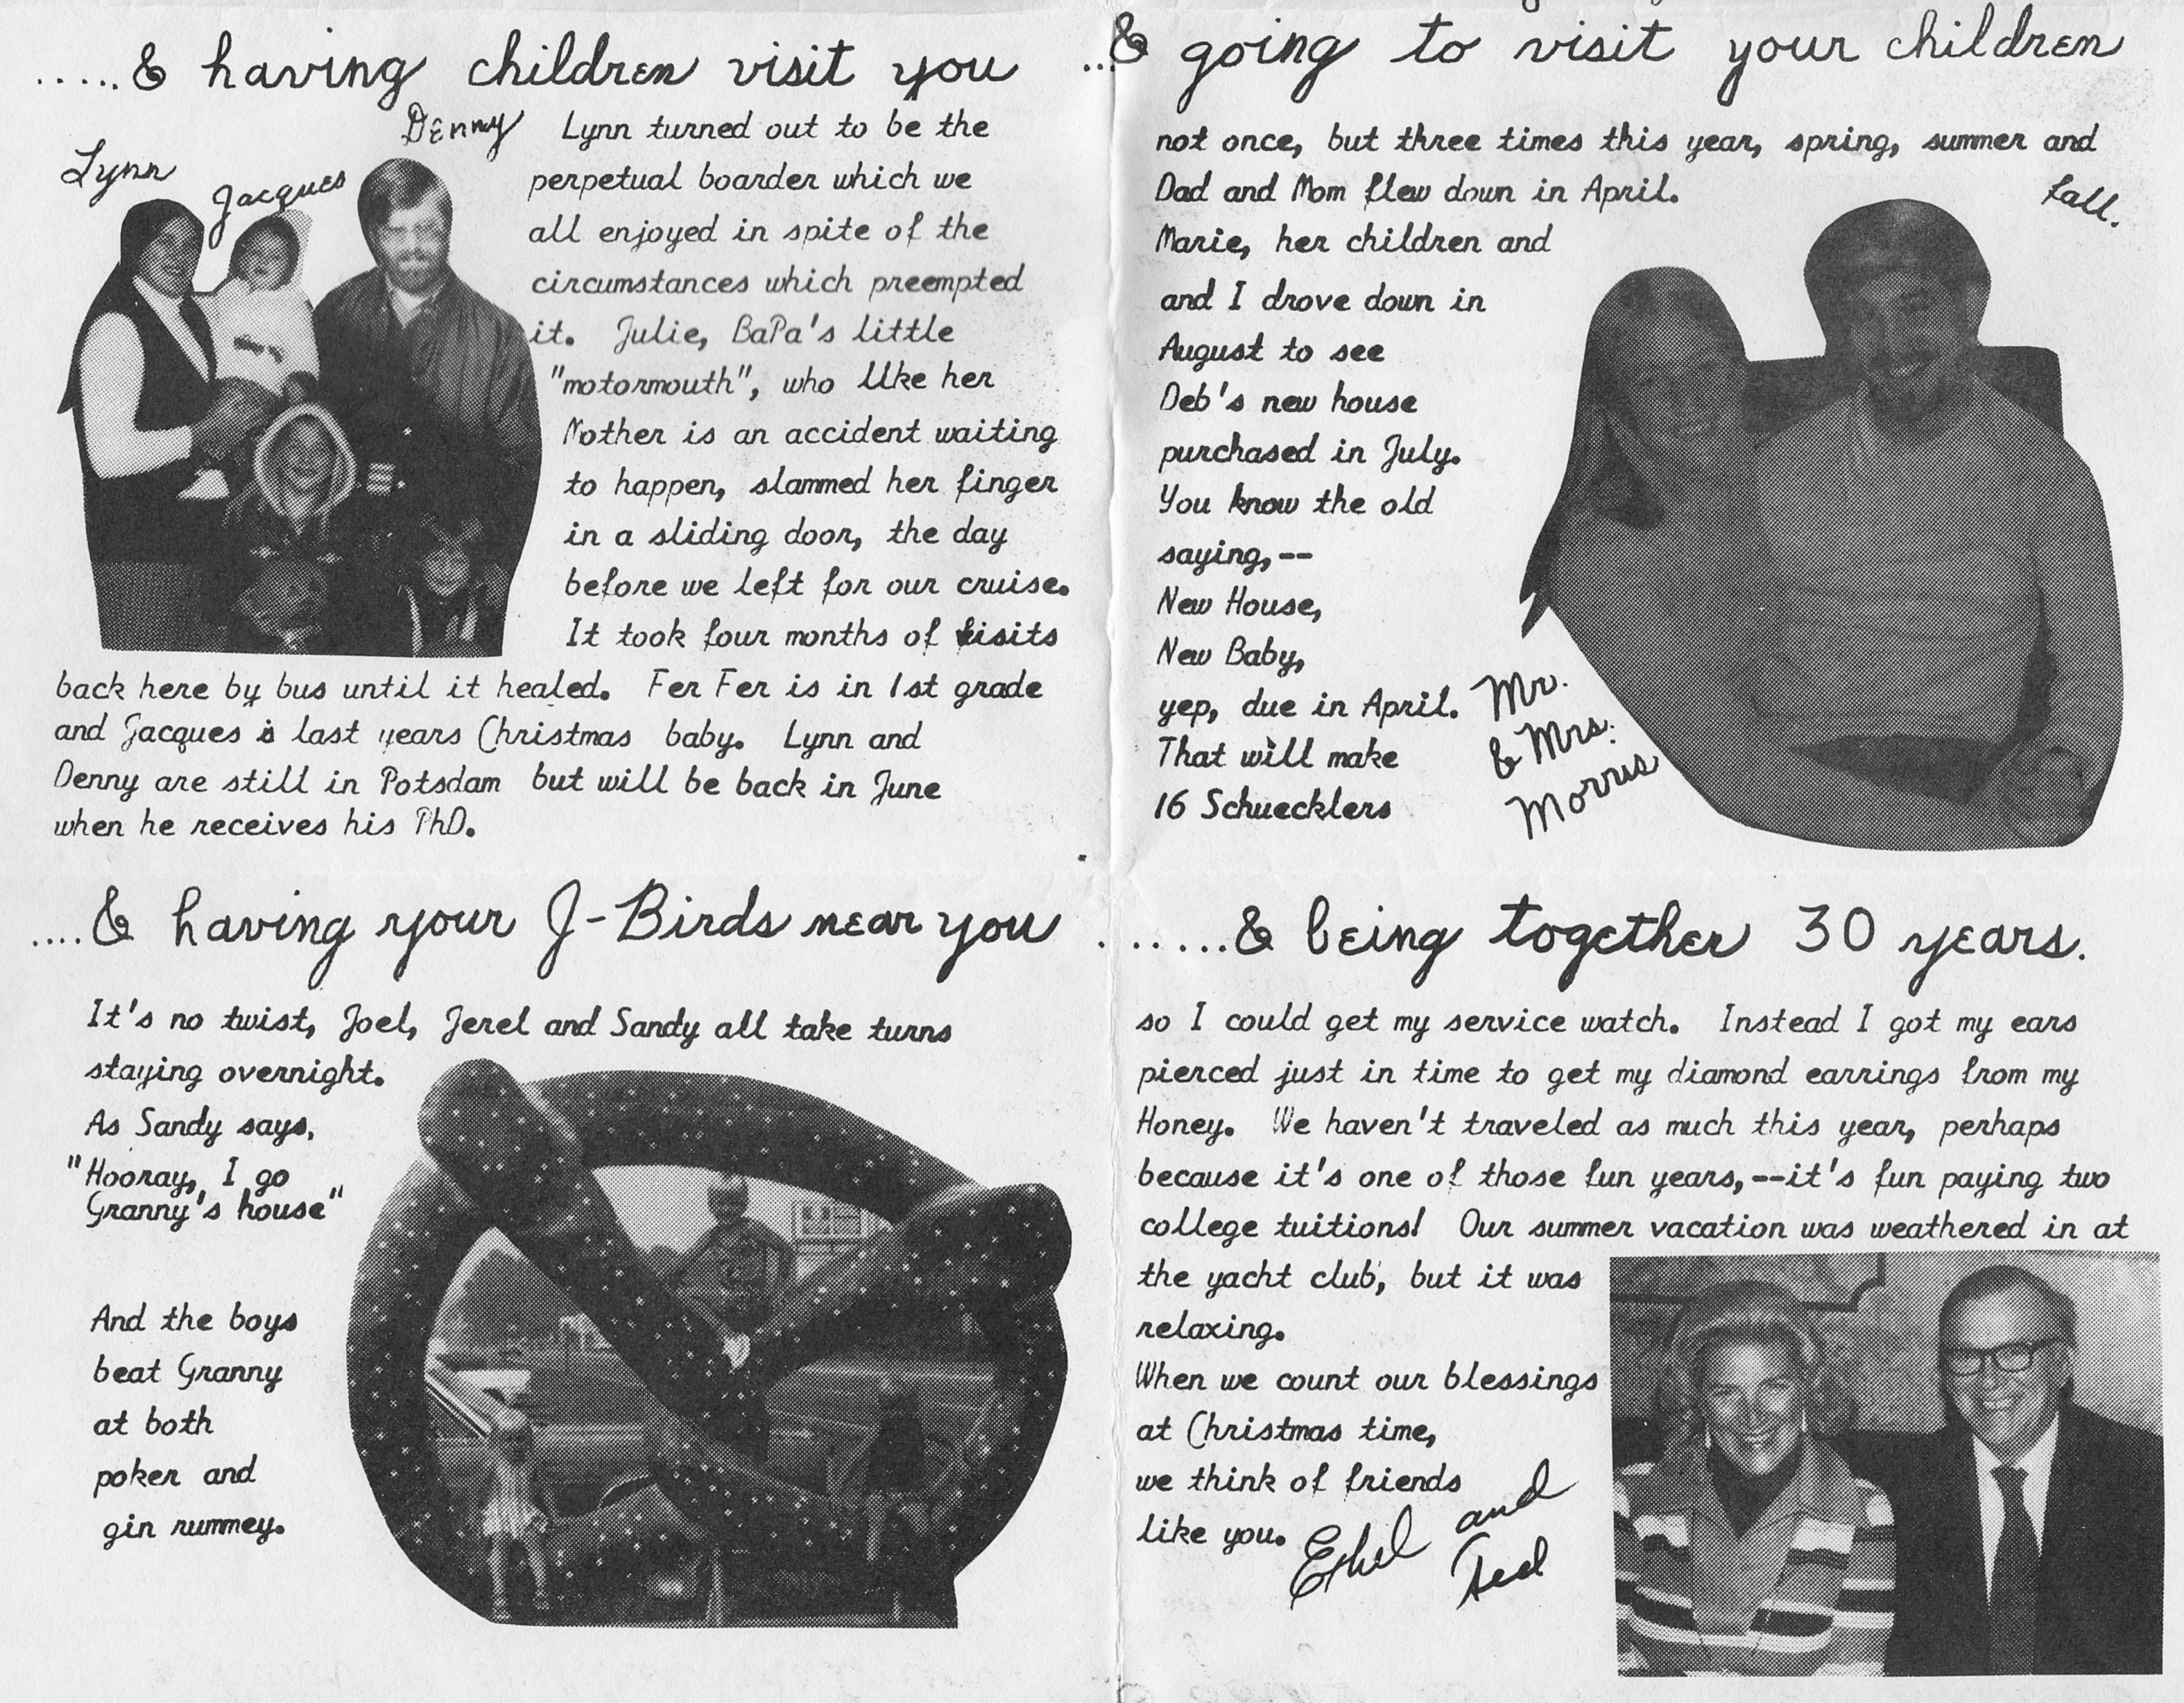 .....& having children visit you
Lynn
Jacques
Denny
Lynn turned out to be the
perpetual boarder which we
all enjoyed in spite of the
circumstances which preempted
it. Julie, BaPa's little
"motormouth", who like her
Mother is an accident waiting
to happen, slammed her finger
in a sliding door, the day
before we left for our cruise.
It took four months of visits
back here by bus until it healed. Fer Fer is in 1st grade
and Jacques is last years Christmas baby. Lynn and
Denny are still in Potsdam but will be back in June
when he receives his PhD.
...& going to visit your children
not once, but three times this year, spring, summer and
fall.
Dad and Mom flew down in April.
Marie, her children and
and I drove down in
August to see
Deb's new house
purchased in July.
You know the old
saying,--
New House,
New Baby,
yep, due in April.
That will make
16 Schuecklers
Mr.
& Mrs.
Morris
....& having your J-Birds near you
It's no twist, Joel, Jerel and Sandy all take turns
staying overnight.
As Sandy says,
"Hooray, I go
Granny's house"
And the boys
beat Granny
at both
poker and
gin rummey.
.......& being together 30 years.
so I could get my service watch. Instead I got my ears
pierced just in time to get my diamond earrings from my
Honey. We haven't traveled as much this year, perhaps
because it's one of those fun years,--it's fun paying two
college tuitions! Our summer vacation was weathered in at
the yacht club, but it was
relaxing.
When we count our blessings
at Christmas time,
we think of friends
like you.
Ethel and
Ted